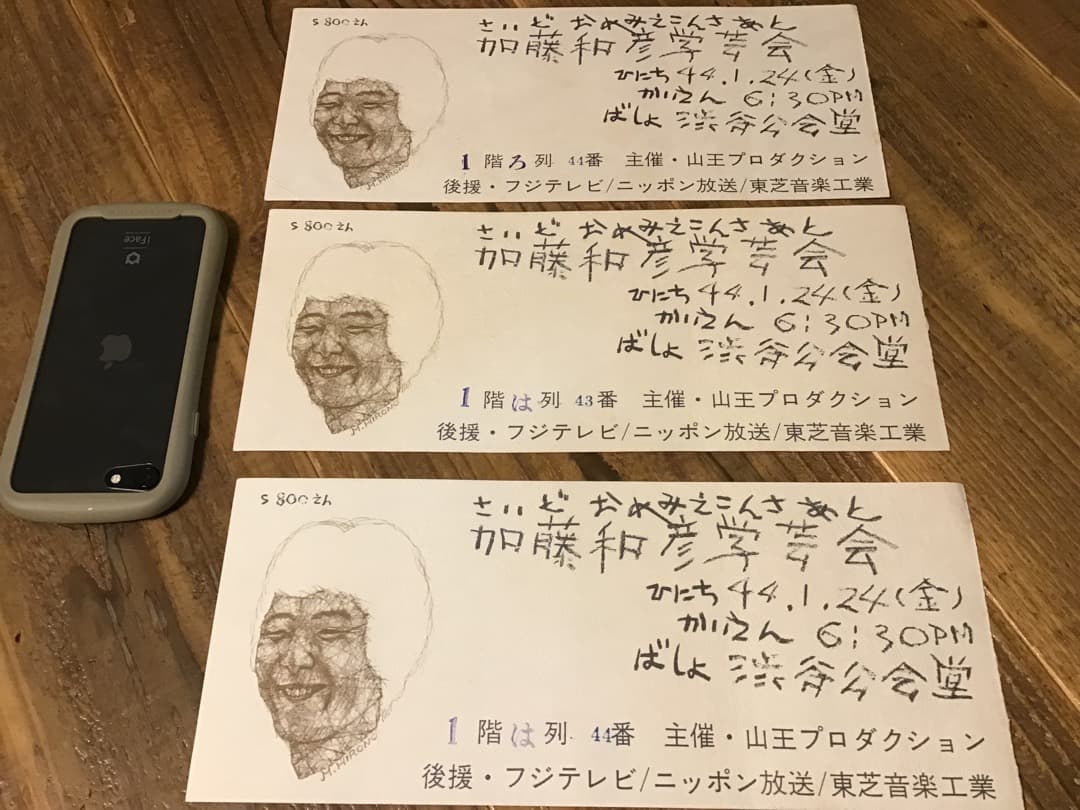 S 800 えん
さいど おめみえこんさあと
加藤和彦学芸会
ひにち 44.1.24(金)
かいえん 6:30PM
ばしょ 渋谷公会堂
1階ろ列 44番 主催・山王プロダクション
後援・フジテレビ/ニッポン放送/東芝音楽工業
M.MIRONO
S 800 えん
さいど おめみえこんさあと
加藤和彦学芸会
ひにち 44.1.24(金)
かいえん 6:30PM
ばしょ 渋谷公会堂
1階は列 43番 主催・山王プロダクション
後援・フジテレビ/ニッポン放送/東芝音楽工業
M.MIRONO
S 800 えん
さいど おめみえこんさあと
加藤和彦学芸会
ひにち 44.1.24(金)
かいえん 6:30PM
ばしょ 渋谷公会堂
1階は列 44番 主催・山王プロダクション
後援・フジテレビ/ニッポン放送/東芝音楽工業
M.MIRONO
iFace